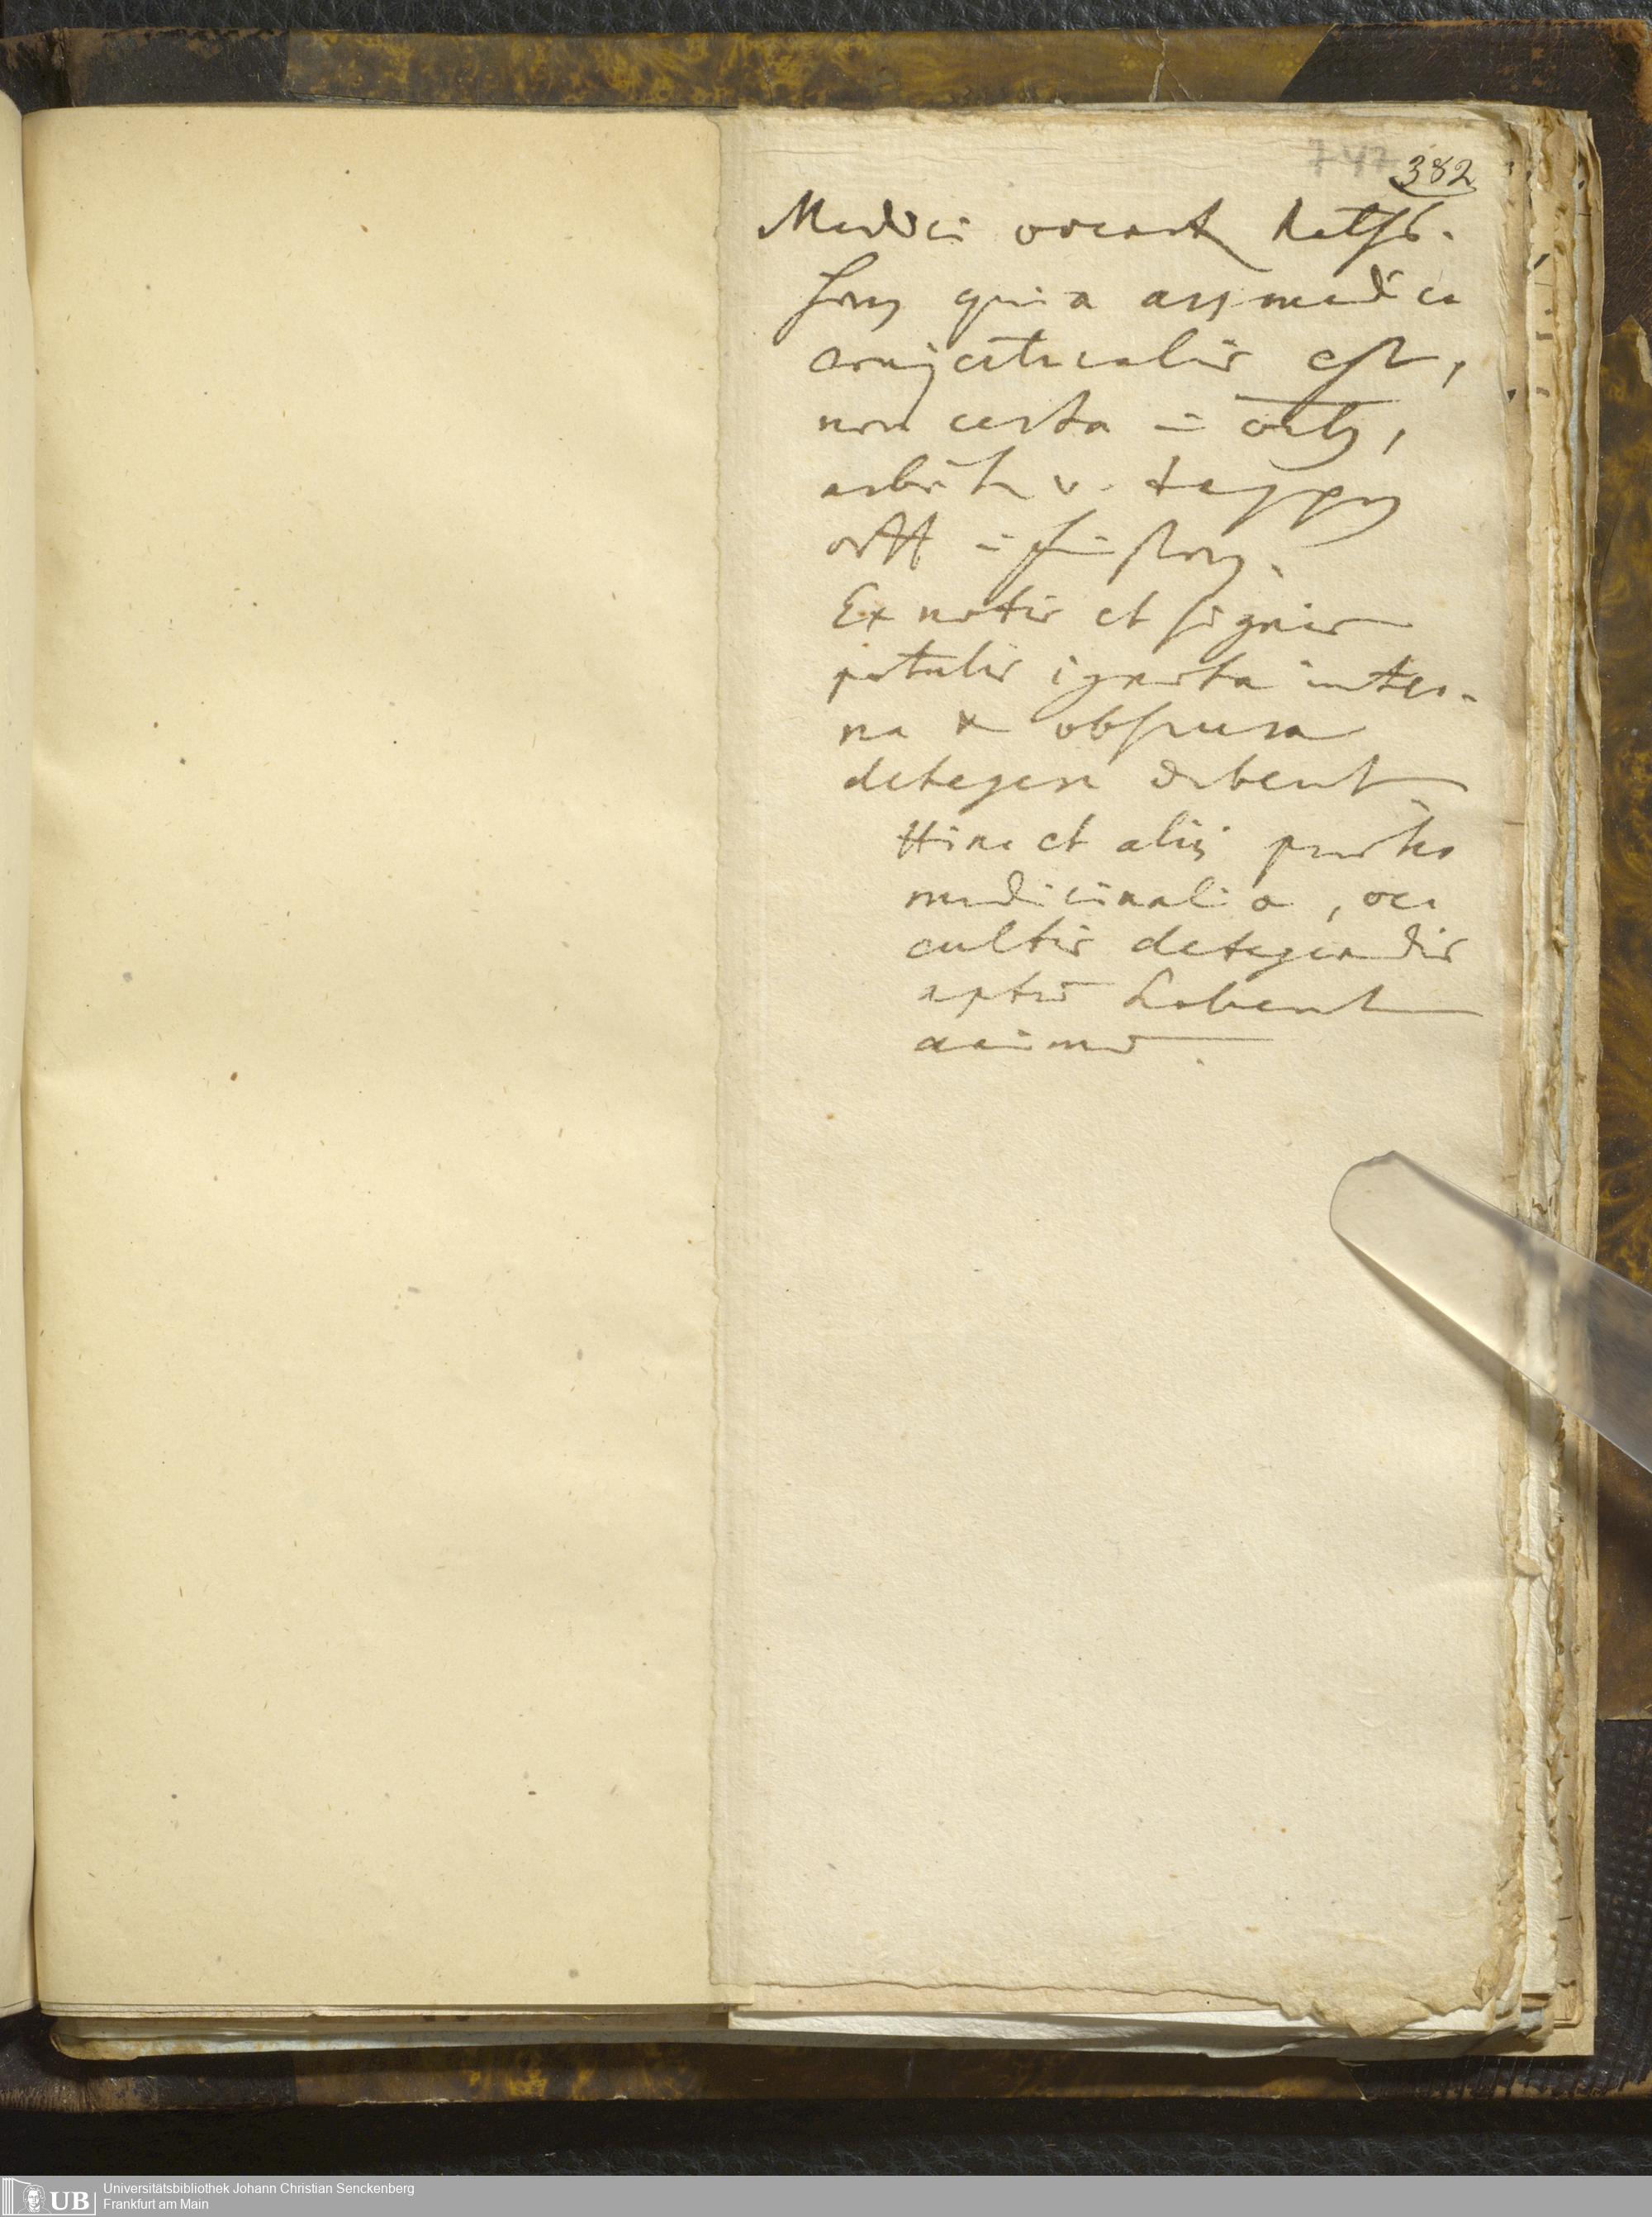 747 382
Medici vocant
quia ars medica
conjecturalis est,
non certa in
arbeiten u. tappen
offt im finstern.
Ex notis et signis
patulis ignota inter-
na & obscura
detegere debent
Hinc et aliis
medicinalia, oc-
cultis detegendis
aptū habent
animū.
UB
Universitätsbibliothek Johann Christian Senckenberg
Frankfurt am Main